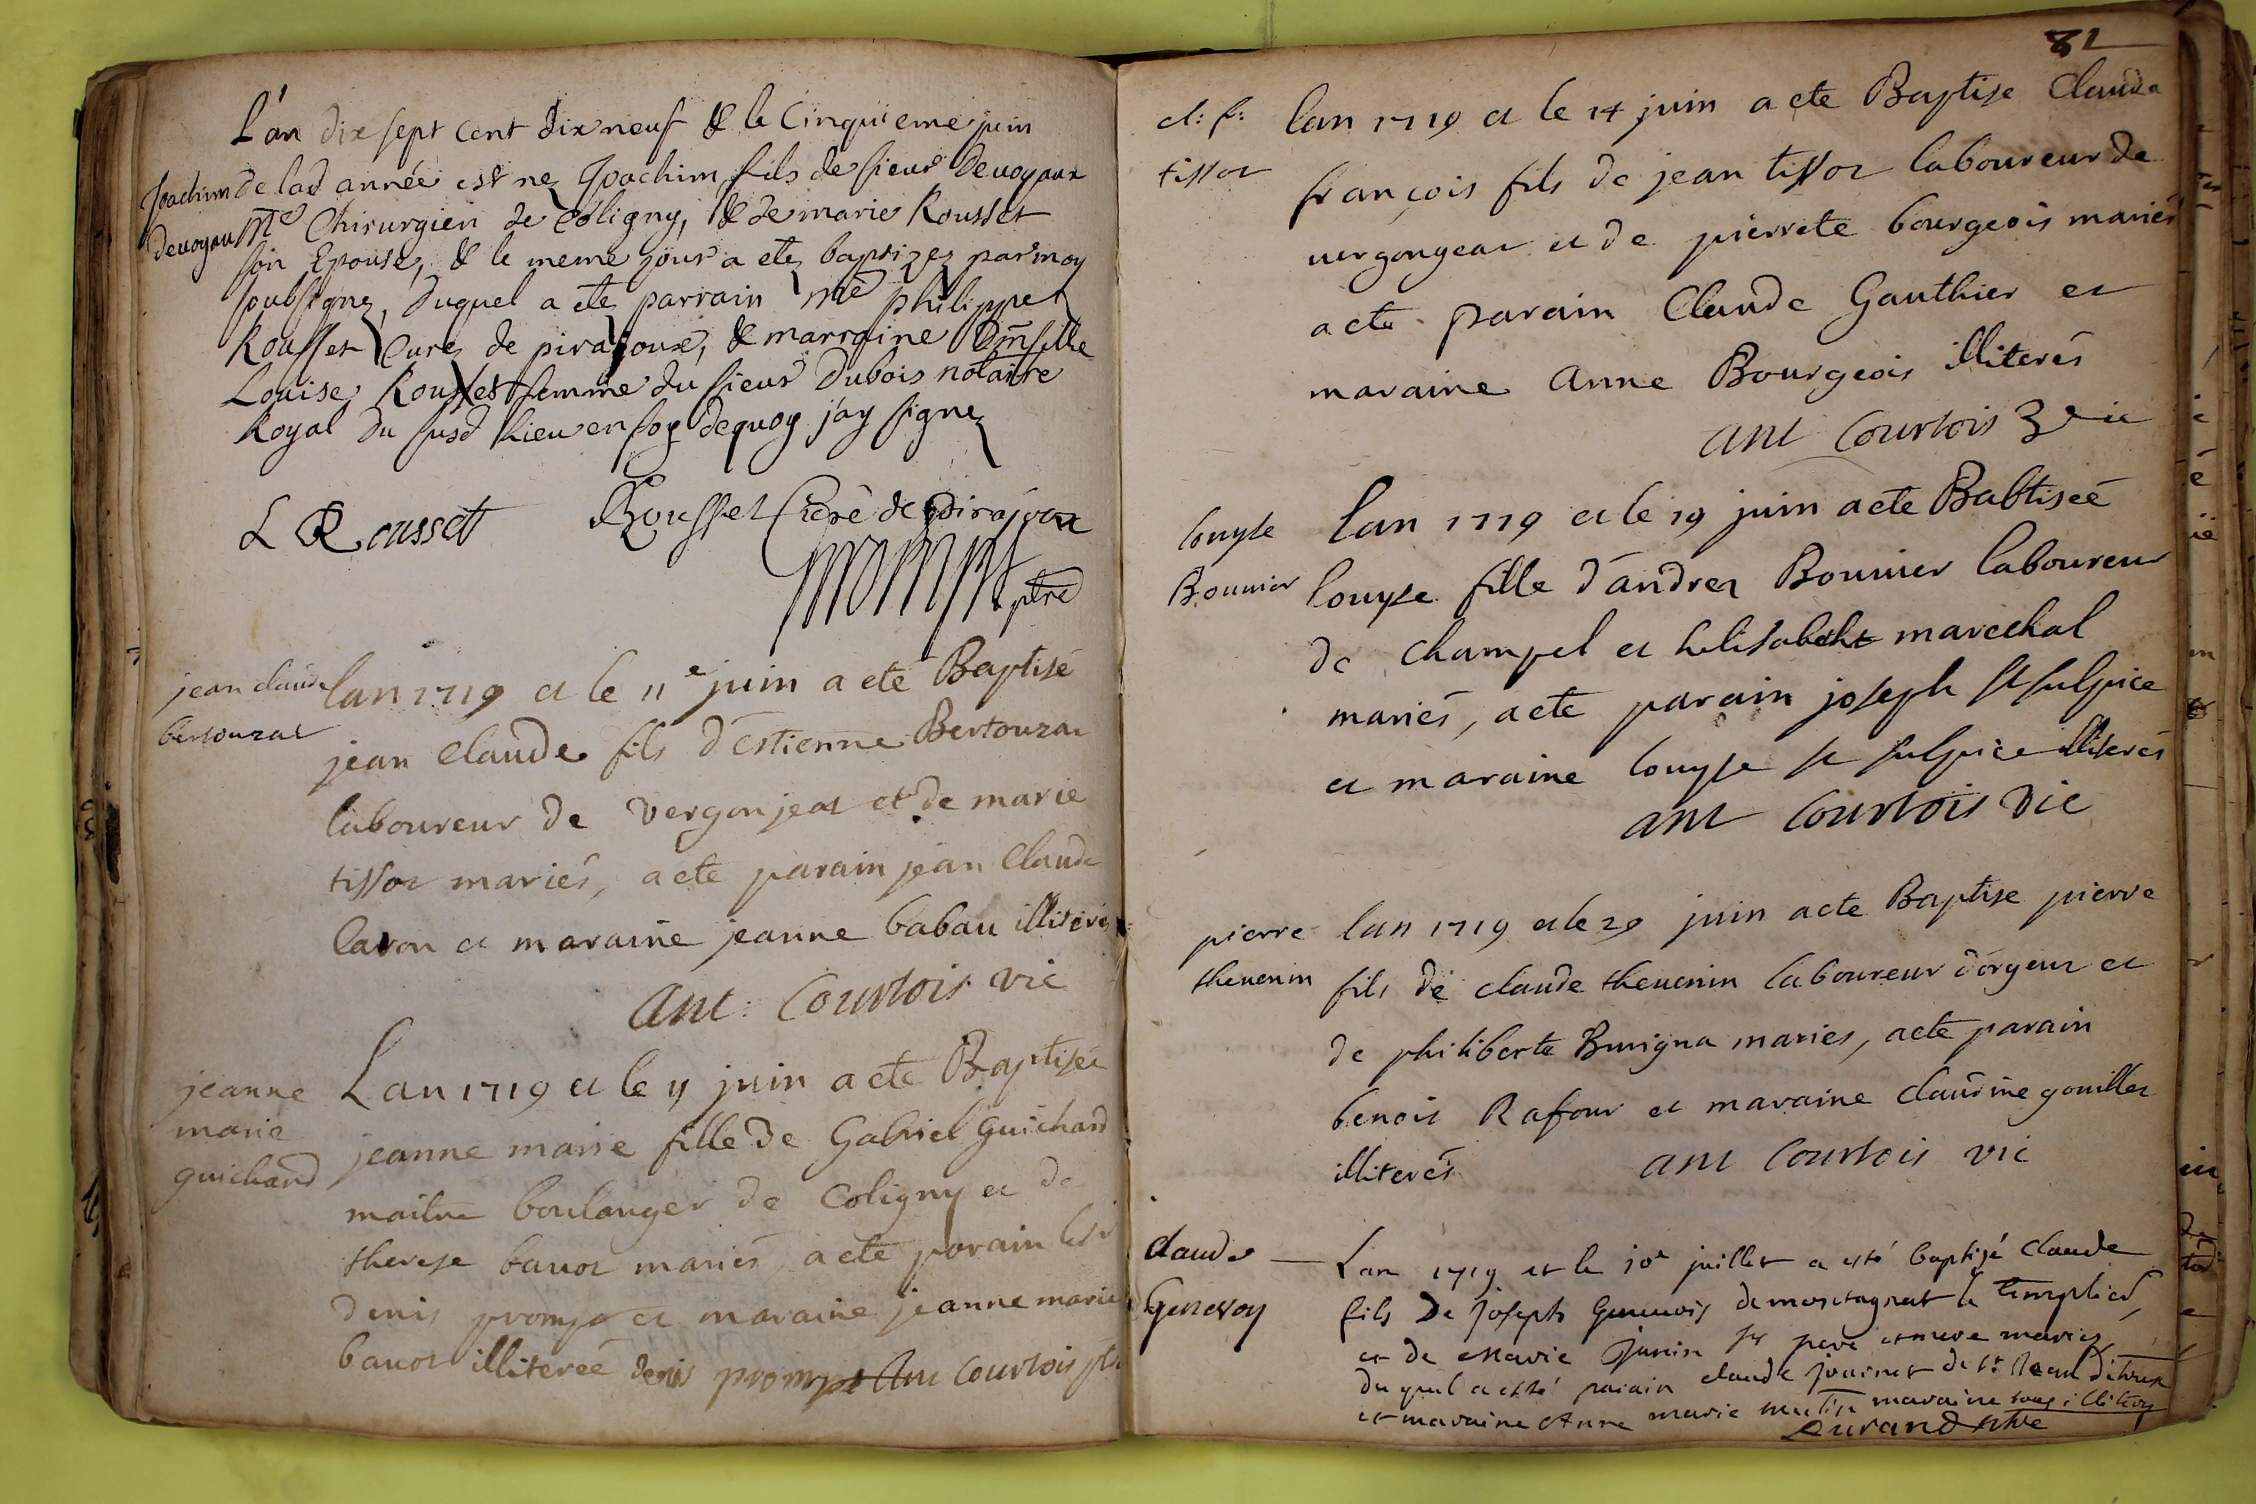 L'an dix sept cent dix neuf & le Cinquieme juin
Joachim
devoyau
de lad année est nez Joachim fils de sieur devoyaux
Me Chirurgien de Coligny, & de marie Rousset
son Epouse, & le meme jour a etez baptizez par moy
soubsignez, duquel a ete parrain me philippe
Rousset Curez de pirajoux, & marraine Dmselle
Louise Rousset femme du sieur Dubois notaire
Royal du susd lieu en foy dequoy j'ay signez
L Rousset
Rousset Curé de Pirajoux
prompt ptre
jean claude
bertouzat
lan 1719 et le 11e juin a eté Baptisé
jean Claude fils d'estienne Bertouzat
laboureur de vergonjeat et de marie
tissot mariés, a eté parain jean Claude
Caron et maraine jeanne babau illiterés
Ant: Courtois vic
jeanne
marie
guichard
Lan 1719 et le 11 juin a eté Baptisée
jeanne marie fille de Gabriel Guichard
maitre boulanger de Coligny et de
therese bavoz mariés a eté parain
denis prompt et maraine jeanne marie
bavoz illitereé denis prompt Ant Courtois
82
cl: f:
tissot
lan 1719 et le 14 juin a ete Baptise Claude
françois fils de jean tissot laboureur de
vergongeat et de pierrete bourgeois mariés
a eté parain Claude Gauthier et
maraine Anne Bourgeois illiterés
Ant Courtois vic
louyse
Bouvier
lan 1719 et le 19 juin a eté Babtiseé
louyse fille d'andrez Bouvier laboureur
de Champel et helisabeht marechal
mariés, a eté parain joseph st sulpice
et maraine louyse st sulpice illiterés
ant Courtois vic
pierre
thevenin
lan 1719 et le 29 juin a ete Baptise pierre
fils de claude thevenin laboureur d'orgeur et
de philiberte Buvigna mariés, a eté parain
benoit Rafour et maraine Claudine gouillez
illiterés
ant Courtois vic
claude
Genevoy
Lan 1719 et le 10e juillet a esté baptizé claude
fils de joseph Genevois de montagnat le templier
et de marie junin ses pere et mere mariez
duquel a esté parain claude journet de st. Jean d'etreux
et maraine Anne marie maraine tous illiterez
Durand ptre